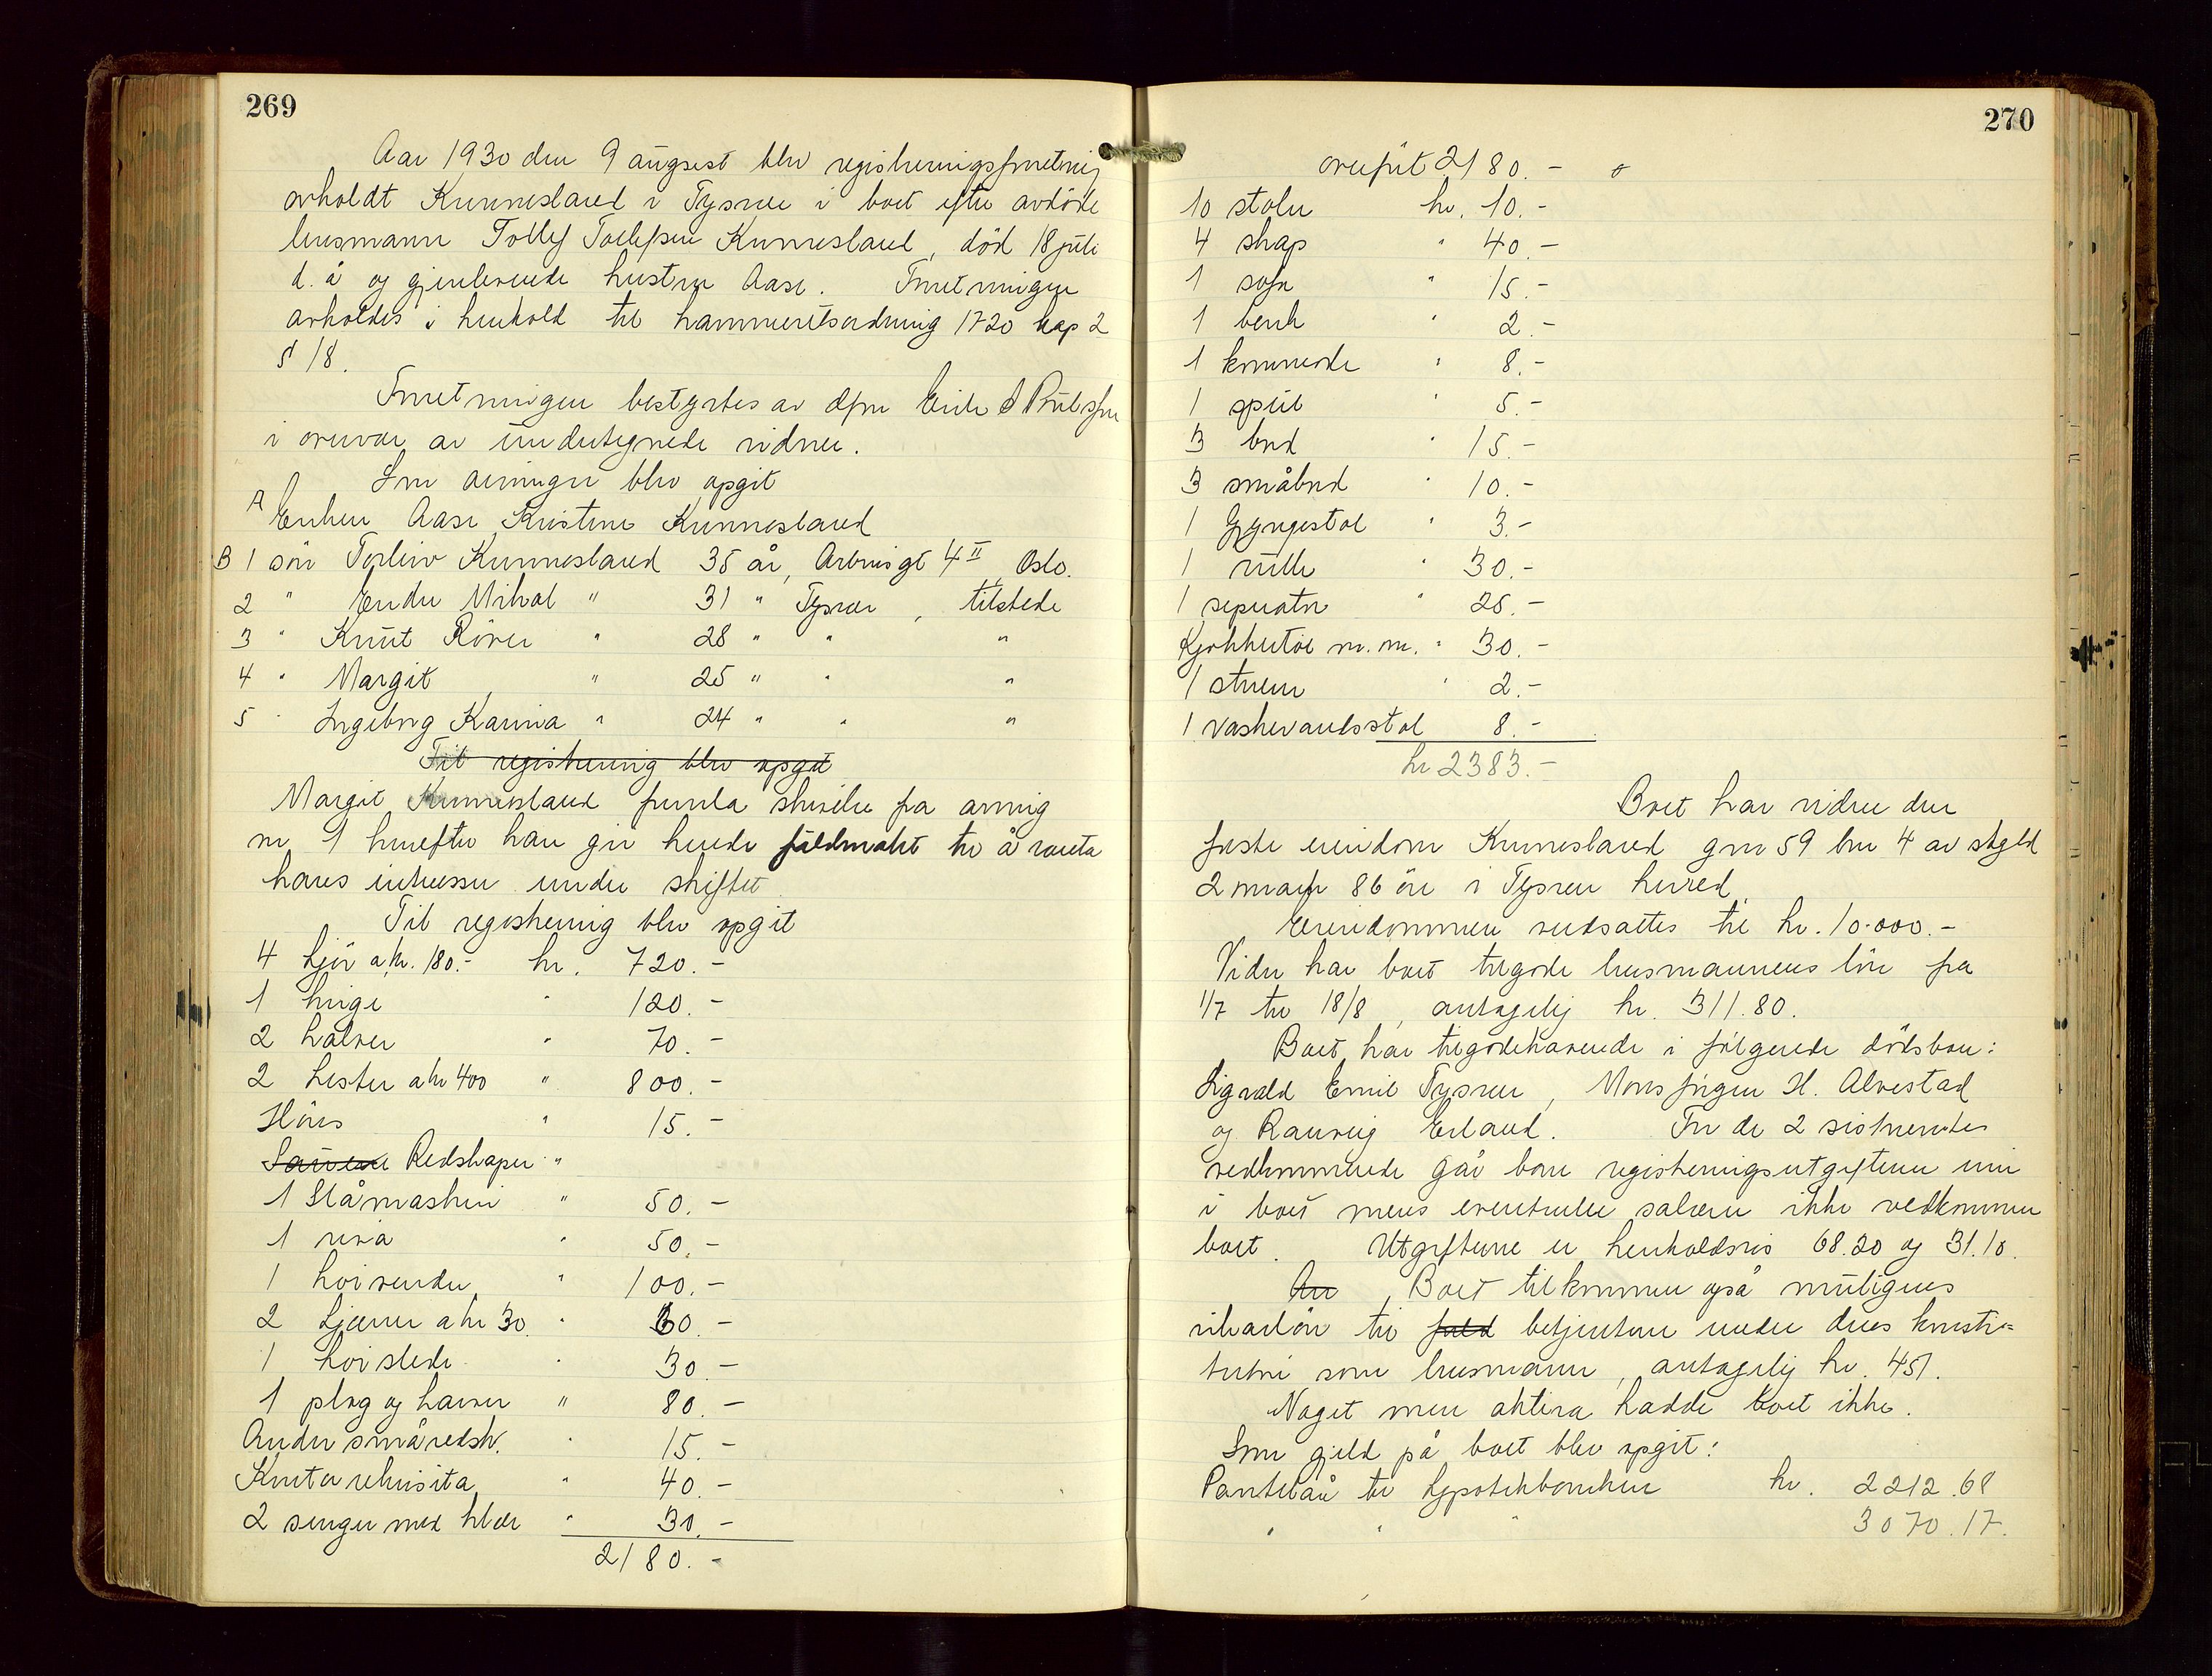 269
Aar 1930 den 9 august blev registreringsforretning
avholdt Kunnesland i Tysvær i boet efter avdöde
lensmann Tollef Torlefsen Kunnesland, död 18 juli
d. å og gjenlevende hustru Aase. Forretningen
avholdes i henhold til kammerretsordning 1720 kap 2
§ 18.
Forretningen bestyrtes av
i overvær av undertegnede vidner.
Som arvinger blev opgit
A Enken Aase Kristine Kunnesland
B 1 sön Torleiv Kunnesland 35 år, Arbinsgt 4 II, Oslo.
2 " Endre Mikal " 31 " Tysvær, tilstede
3 " Knut Röver " 28 " " "
4 " Margit " 25 " " "
5 " Ingeborg Karina " 24 " " "
Til registrering blev opgit
Margit Kunnesland forela skrivelse fra arving
nr 1 hvorefter han gir hende fuldmakt til å vareta
hans interesser under skiftet
Til registrering blev opgit
4 kjör a kr. 180.- kr. 720.-
1 kvige " 120.-
2 kalver " 70.-
2 hester a kr 400 " 800.-
Höns " 15.-
Sauene Redskaper "
1 Slåmaskin " 50.-
1 riva " 50.-
1 höivender " 100.-
2 kjærrer a kr 30. " 60.-
1 höislede " 30.-
1 plog og harver " 80.-
Andre småredsk. " 15.-
Kontorrekvisita " 40.-
2 senger med klær " 30.-
2180.-
270
overfört 2180.-
10 stoler kr. 10.-
4 skap " 40.-
1 sofa " 15.-
1 benk " 2.-
1 kommode " 8.-
1 speil " 5.-
3 bord " 15.-
3 småbord " 10.-
1 Gyngestol " 3.-
1 rulle " 30.-
1 separator " 25.-
Kjökkentöi m.m. " 30.-
1 " 2.-
1 vaskevandsstol 8.-
kr 2383.-
Boet har videre den
faste eiendom Kunnesland gnr 59 bnr 4 av skyld
2 mark 86 öre i Tysvær herred.
Eiendommen verdsattes til kr. 10.000.-
Vider har boet tilgode lensmannens lön fra
1/7 til 18/8, antagelig kr. 311.80.
Boet har tilgodehavende i fölgende dödsboer:
Sigvald Emil Tysvær, Mons Jörgen H. Alvestad
og Rannveig Erland. For de 2 sistnevntes
vedkommende går bare registreringsutgiftene inn
i boet mens eventuelle salærer ikke vedkommer
boet. Utgiftene er henholdsvis 68.20 og 31.10.
An Boet tilkommer også muligens
vikarlön til fuld betjentene under dres konsti-
tution som lensmann, antagelig kr. 451.
Noget mer aktiva hadde boet ikke.
Som gjeld på boet blev opgit:
Pantelån til hypotekbanken kr. 2212.68
" " " 3070.17.